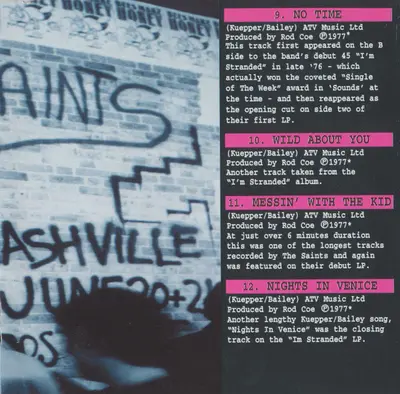 HONEY HONEY HONEY
AINTS
ASHVILLE
JUNE 20+2
OS
9. NO TIME
(Kuepper/Bailey) ATV Music Ltd
Produced by Rod Coe ℗1977*
This track first appeared on the B
side to the band's debut 45 "I'm
Stranded" in late '76 - which
actually won the coveted "Single
of The Week" award in 'Sounds' at
the time - and then reappeared as
the opening cut on side two of
their first LP.
10. WILD ABOUT YOU
(Kuepper/Bailey) ATV Music Ltd
Produced by Rod Coe ℗1977*
Another track taken from the
"I'm Stranded" album.
11. MESSIN' WITH THE KID
(Kuepper/Bailey) ATV Music Ltd
Produced by Rod Coe ℗1977*
At just over 6 minutes duration
this was one of the longest tracks
recorded by The Saints and again
was featured on their debut LP.
12. NIGHTS IN VENICE
(Kuepper/Bailey) ATV Music Ltd
Produced by Rod Coe ℗1977*
Another lengthy Kuepper/Bailey song,
"Nights In Venice" was the closing
track on the "Im Stranded" LP.